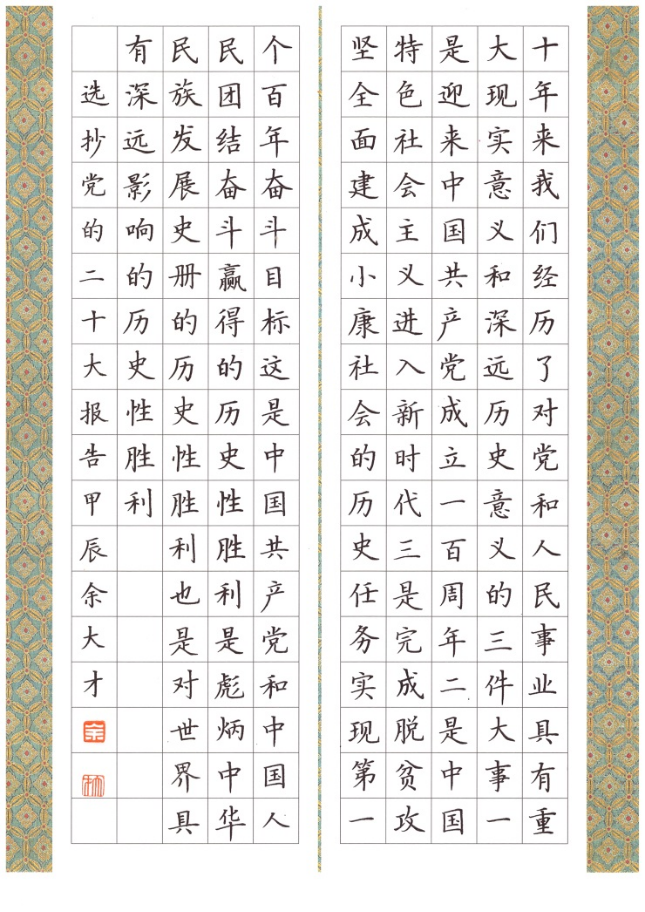 十年来我们经历了对党和人民事业具有重
大现实意义和深远历史意义的三件大事一
是迎来中国共产党成立一百周年二是中国
特色社会主义进入新时代三是完成脱贫攻
坚全面建成小康社会的历史任务实现第一
个百年奋斗目标这是中国共产党和中国人
民团结奋斗赢得的历史性胜利是彪炳中华
民族发展史册的历史性胜利也是对世界具
有深远影响的历史性胜利
选抄党的二十大报告甲辰余大才